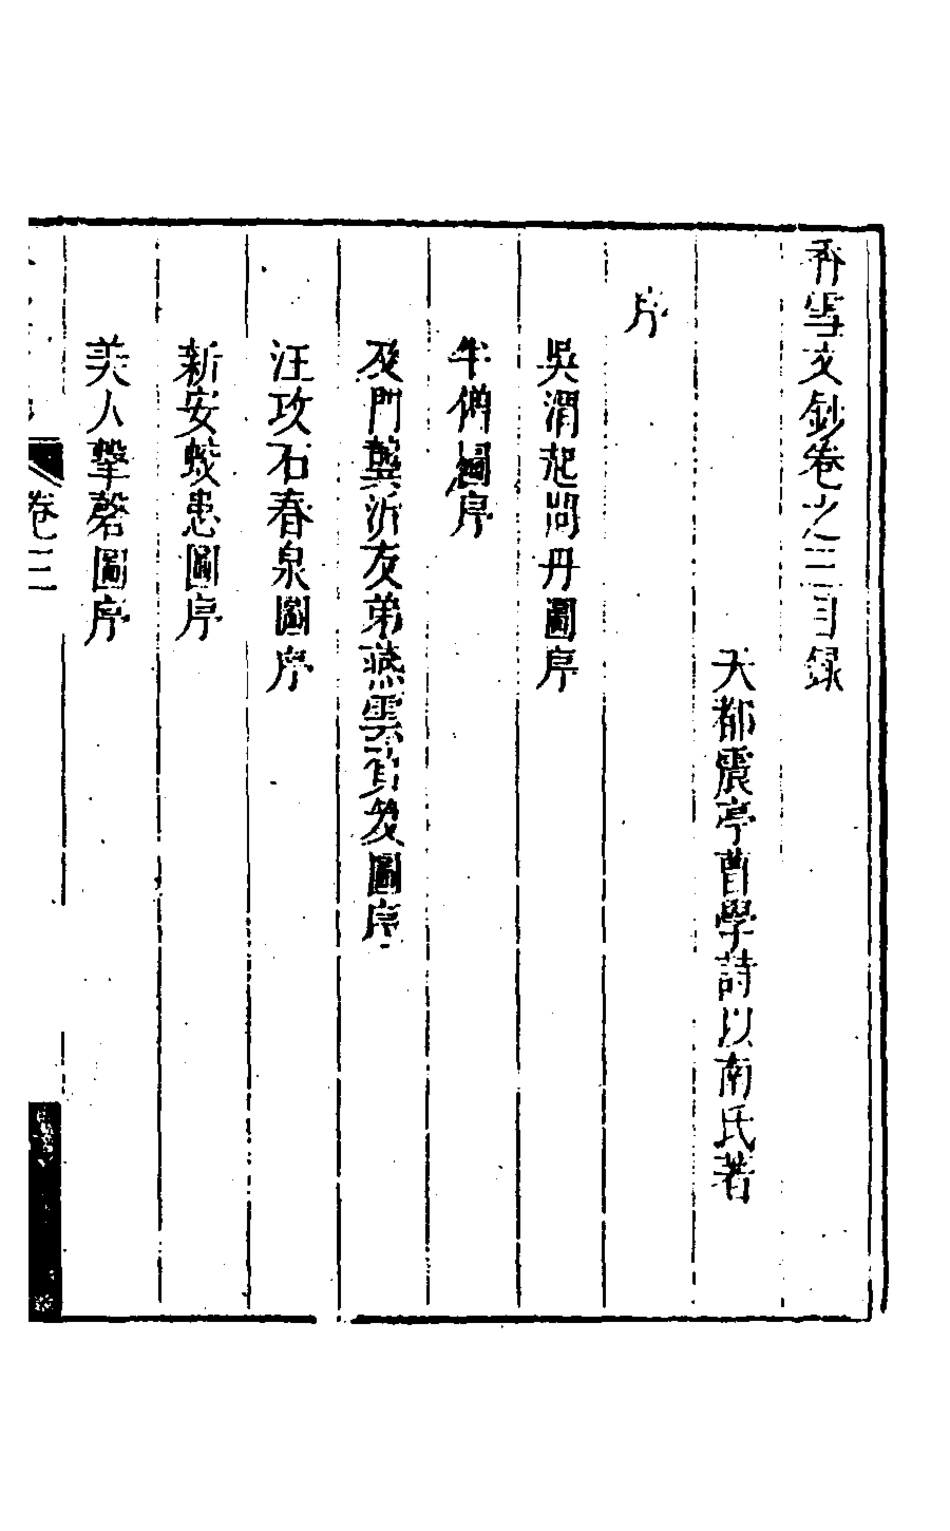 香雪文鈔卷之三目録
天都震亭曹學詩以南氏著
序
吳渭起問丹圖序
半僧圖序
及門龔沂友弟燕雲負笈圖序
汪攻石春泉圖序
新安蛟患圖序
美人擊磬圖序
卷三